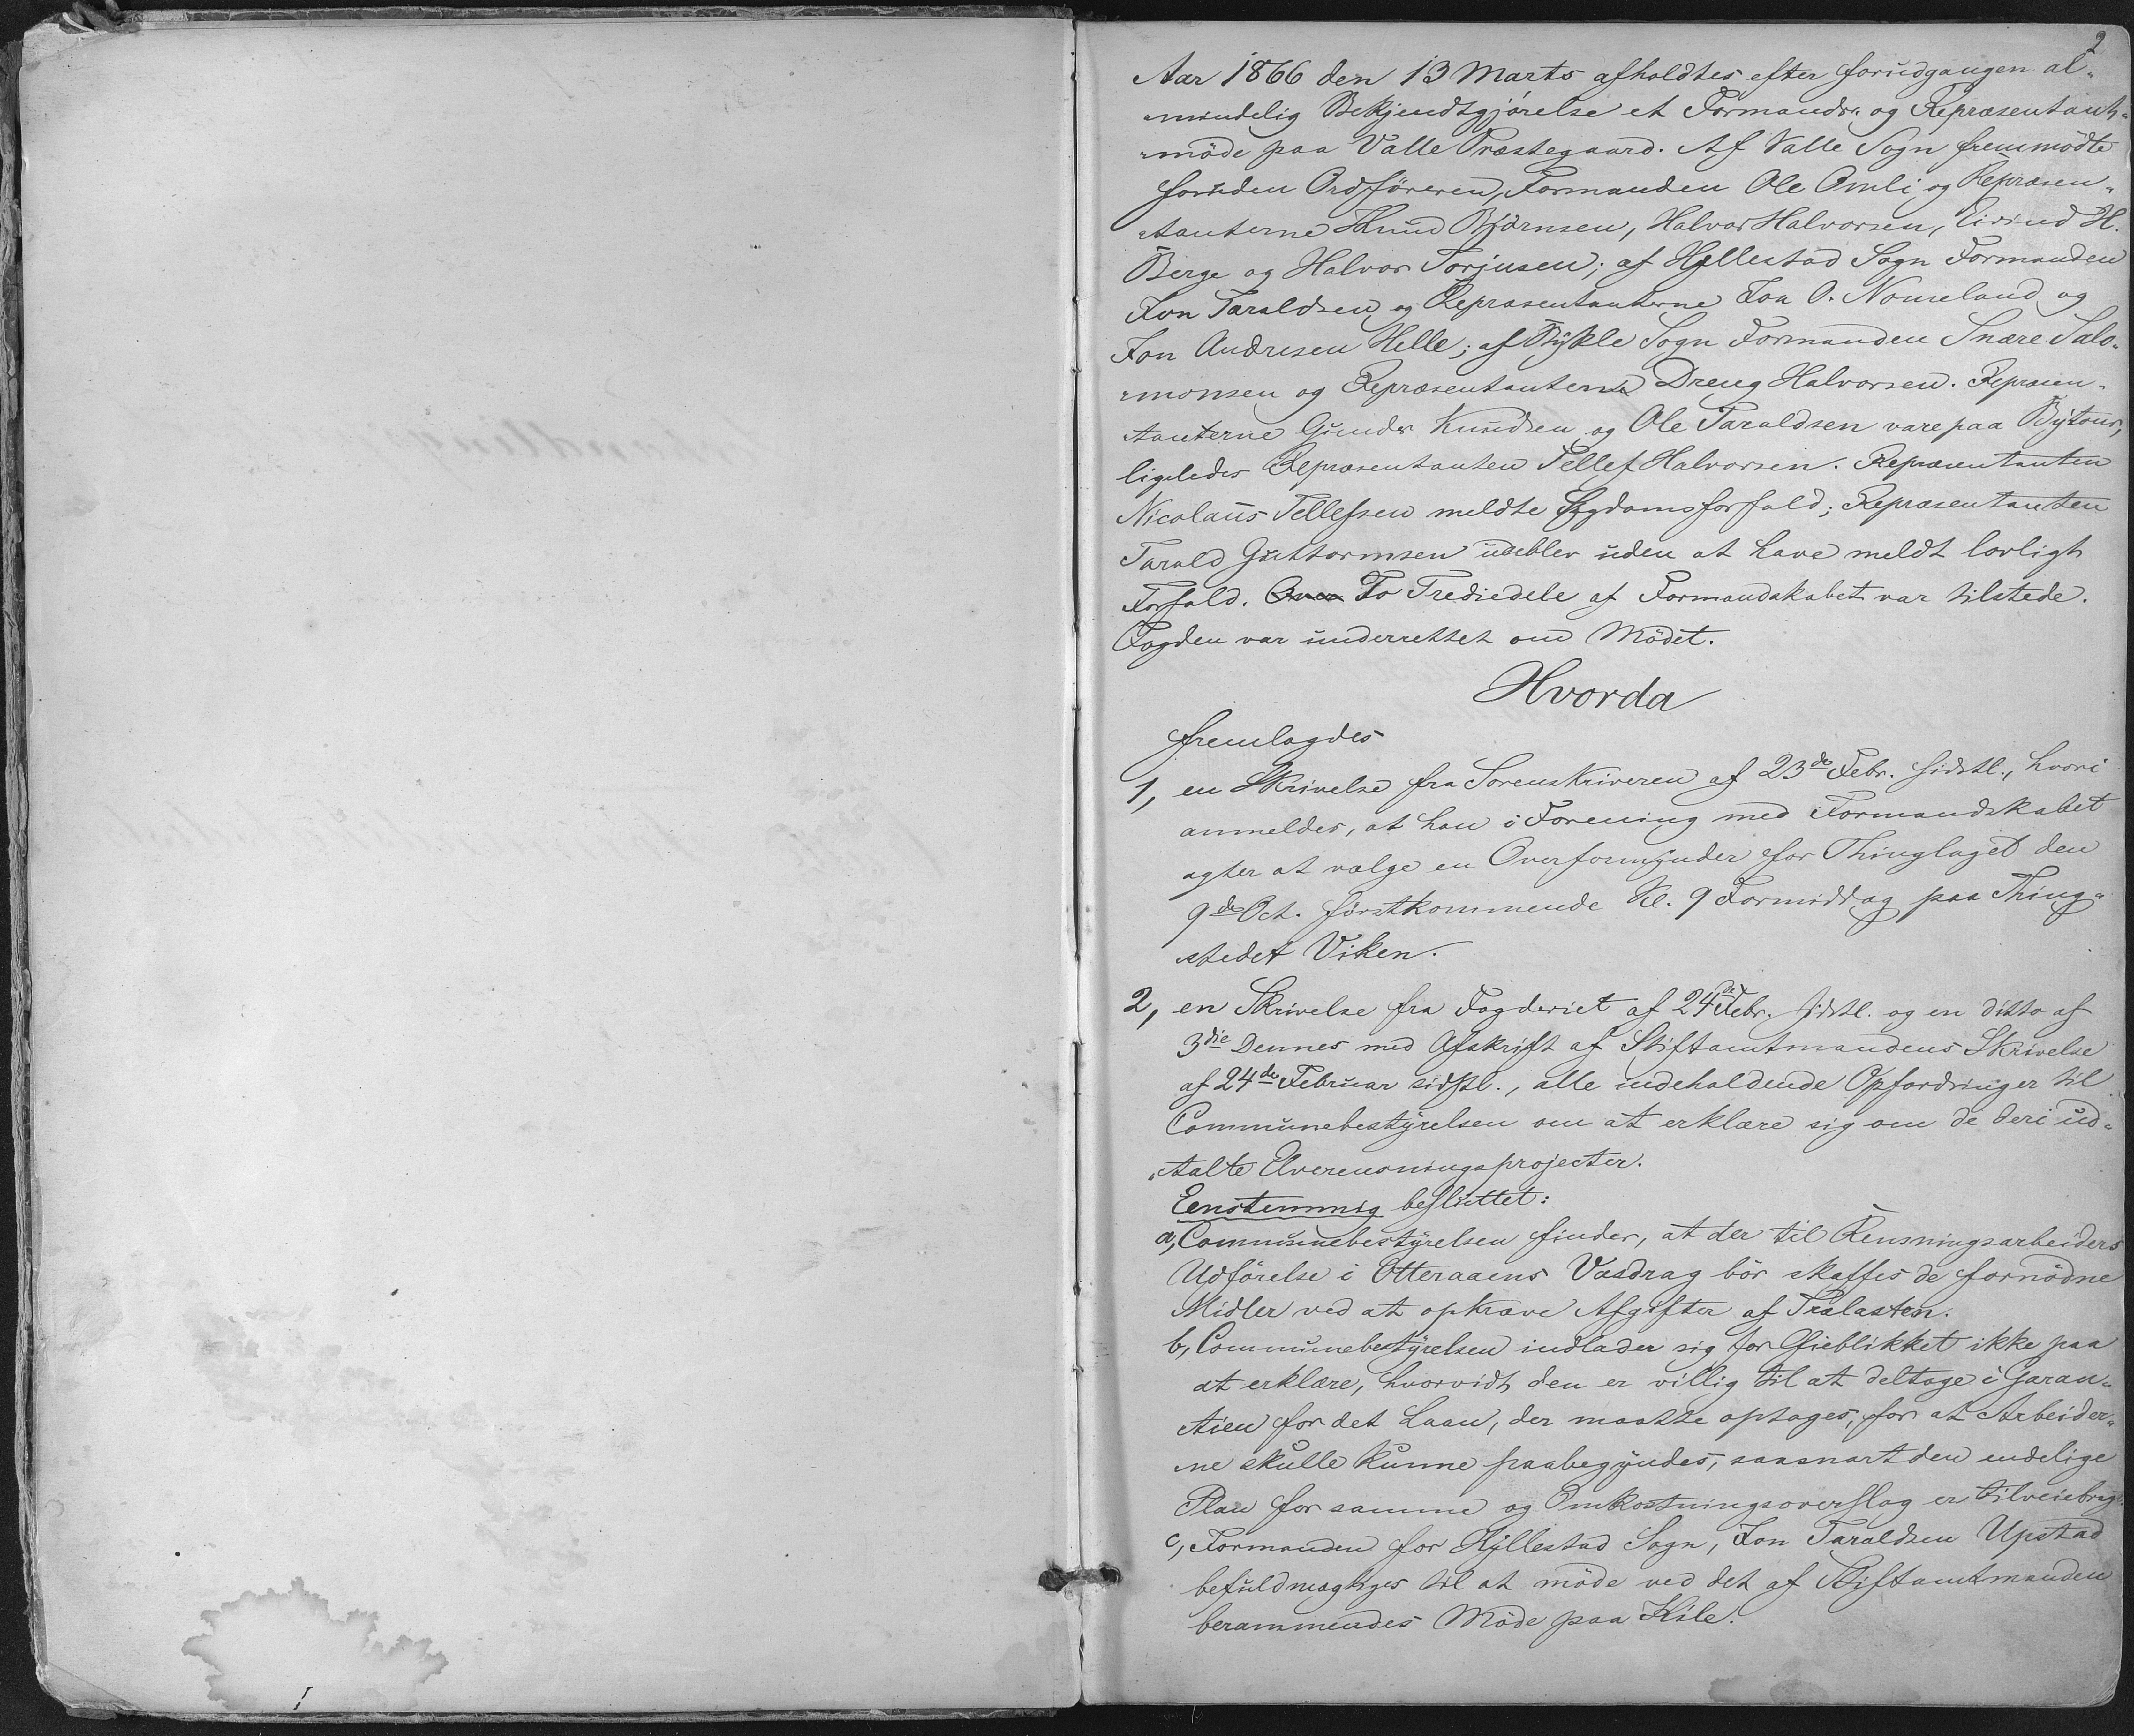 2
Aar 1866 den 13 Marts afholdtes efter forudgangen al„
„mindelig Bekjendtgjørelse et Formands„ og Repræsentant„
„möde paa Valle Præstegaard. Af Valle Sogn fremmödte
foruden Ordföreren, Formanden Ole Omli og Repræsen„
„tanterne Knud Bjørnsen, Halvor Halvorsen, Eivind H.
Berge og Halvor Torjusen; af Hyllestad Sogn Formanden
Jon Taraldsen og Repræsentanterne Jon O. Nomeland og
Jon Andresen Helle; af Bykle Sogn Formanden Snare Salo„
„monsen og Repræsentanterne Dreng Halvorsen. Repræsen„
tanterne Gunder Knudsen og Ole Taraldsen vare paa Bytour,
ligeledes Repræsentanten Tellef Halvorsen. Repræsentanten
Nicolaus Tellefsen meldte Sygdomsforfald; Repræsentanten
Tarald Guttormsen udeblev uden at have meldt lovligt
Forfald. Over To Trediedele af Formandskabet var tilstede.
Fogden var underrettet om Mödet.
Hvorda
fremlagdes
1, en Skrivelse fra Sorenskriveren af 23de Febr. sidstl., hvori
anmeldes, at han i Forening med Formandskabet
agter at vælge en Overformynder for Thinglaget den
9de Oct. förstkommende Kl. 9 Formiddag paa Thing„
stedet Viken.
2, en Skrivelse fra Fogderiet af 24de Febr. sidstl. og en ditto af
3die Dennes med Afskrift af Stiftamtmandens Skrivelse
af 24de Februar sidstl., alle indeholdende Opfordringer til
Communebestyrelsen om at erklære sig om de deri ud„
„talte Elverensningsprojecter.
Eenstemmig besluttet:
a, Communebestyrelsen finder, at der til Rensningsarbeiders
Udförelse i Otteraaens Vasdrag bör skaffes de fornödne
Midler ved at opkræve Afgifter af Trælasten.
b, Communebestyrelsen indlader sig for Øieblikket ikke paa
at erklære, hvorvidt den er villig til at deltage i Garan„
tien for det Laan, der maatte optages, for at Arbeider„
„ne skulle kunne paabegyndes, saasnart den endelige
Plan for samme og Omkostningsoverslag er tilveiebragt.
c, Formanden for Hyllestad Sogn, Jon Taraldsen Upstad
befuldmægtiges til at möde ved det af Stiftamtmanden
berammendes Möde paa Kile.